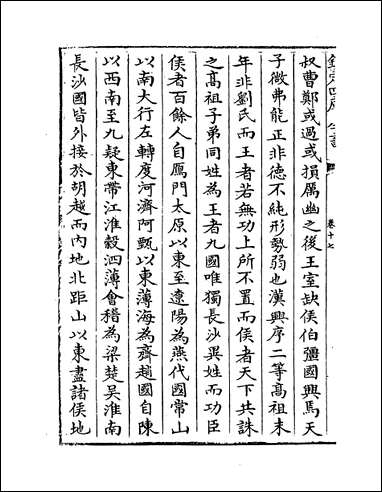 欽定四庫全書
卷十七
叔曹鄭或過或損厲幽之後王室缺侯伯彊國興焉天
子微弗能正非德不純形勢弱也漢興序二等高祖末
年非劉氏而王者若無功上所不置而侯者天下共誅
之高祖子弟同姓為王者九國唯獨長沙異姓而功臣
侯者百餘人自雁門太原以東至遼陽為燕代國常山
以南大行左轉度河濟阿甄以東薄海為齊趙國自陳
以西南至九疑東帶江淮穀泗薄會稽為梁楚吳淮南
長沙國皆外接於胡越而內地北距山以東盡諸侯地